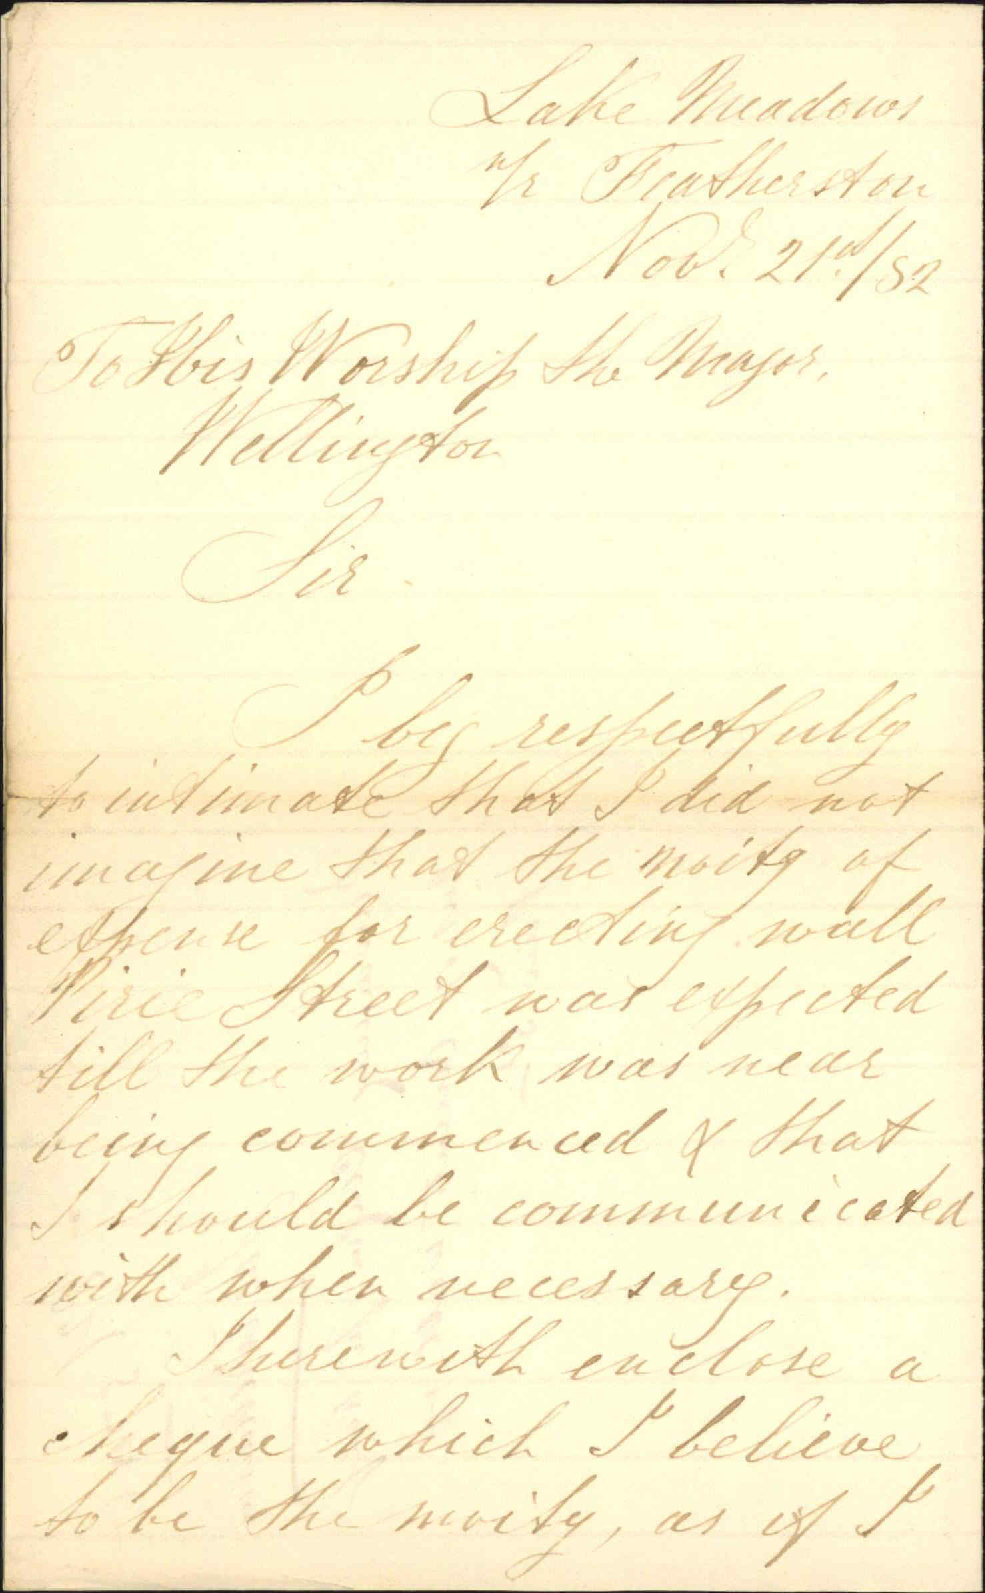 Lake Meadows
n/r Featherston
Novr. 21st/82
To His Worship the Mayor,
Wellington
Sir
I beg respectfully
to intimate that I did not
imagine that the moity of
expense for erecting wall
Pirie Street was expected
till the work was near
being commenced & that
I should be communicated
with when necessary.
I herewith enclose a
cheque which I believe
to be the moity, as if I